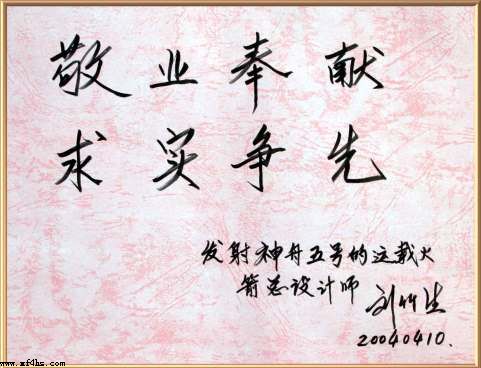 敬业奉献
求实争先
发射神舟五号的运载火
箭总设计师 刘竹生
20040410.
www.xf4hs.com